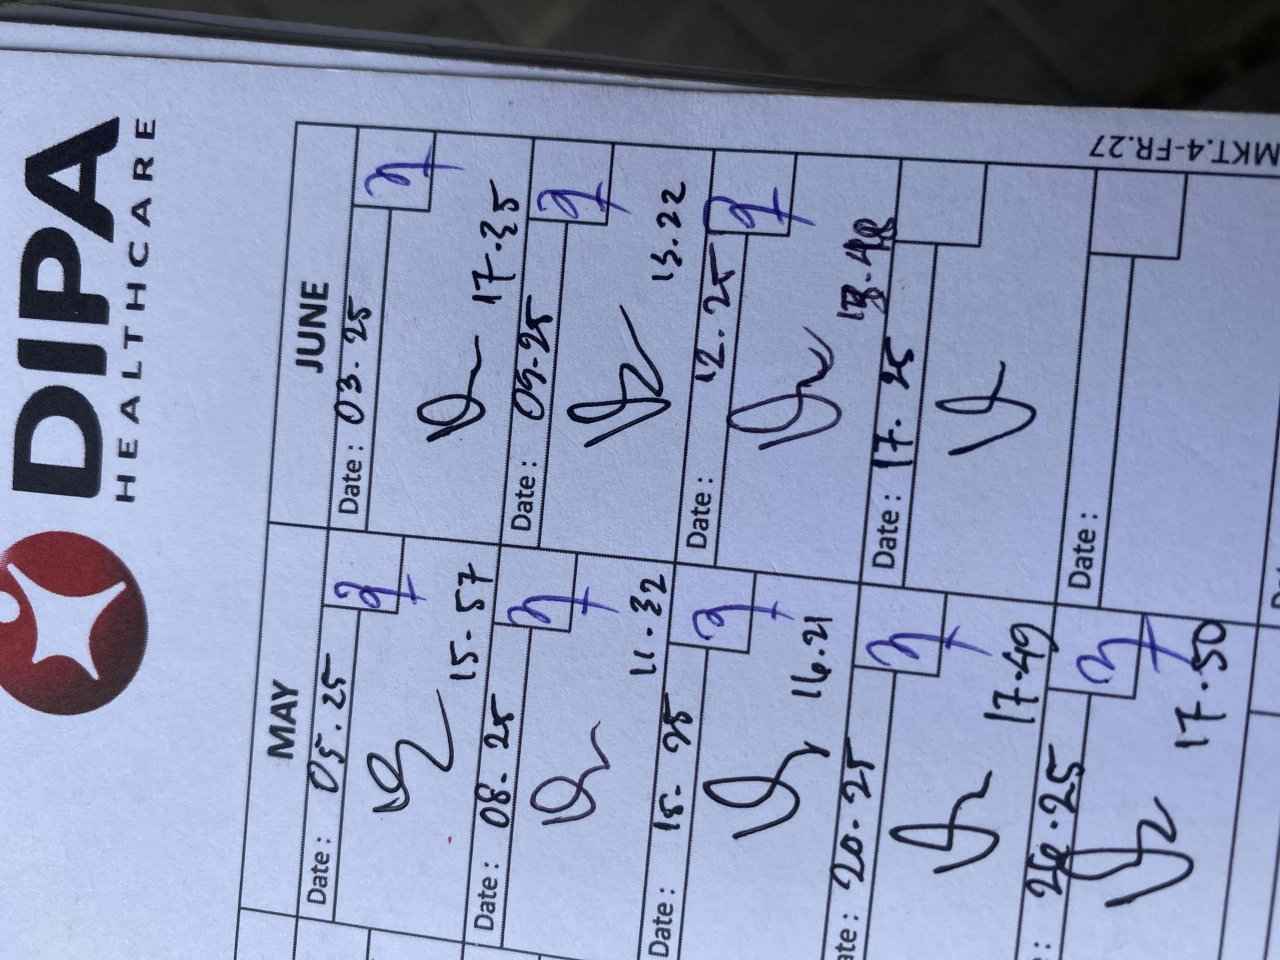 DIPA
HEALTHCARE
MAY
Date: 05.25
15.57
Date: 08.25
11.32
Date: 15.25
16.21
Date: 20.25
17.49
26.25
17.50
JUNE
Date: 03.25
17.35
Date: 09.25
13.22
Date: 12.25
Date: 17.25
Date:
MKT.4-FR.27